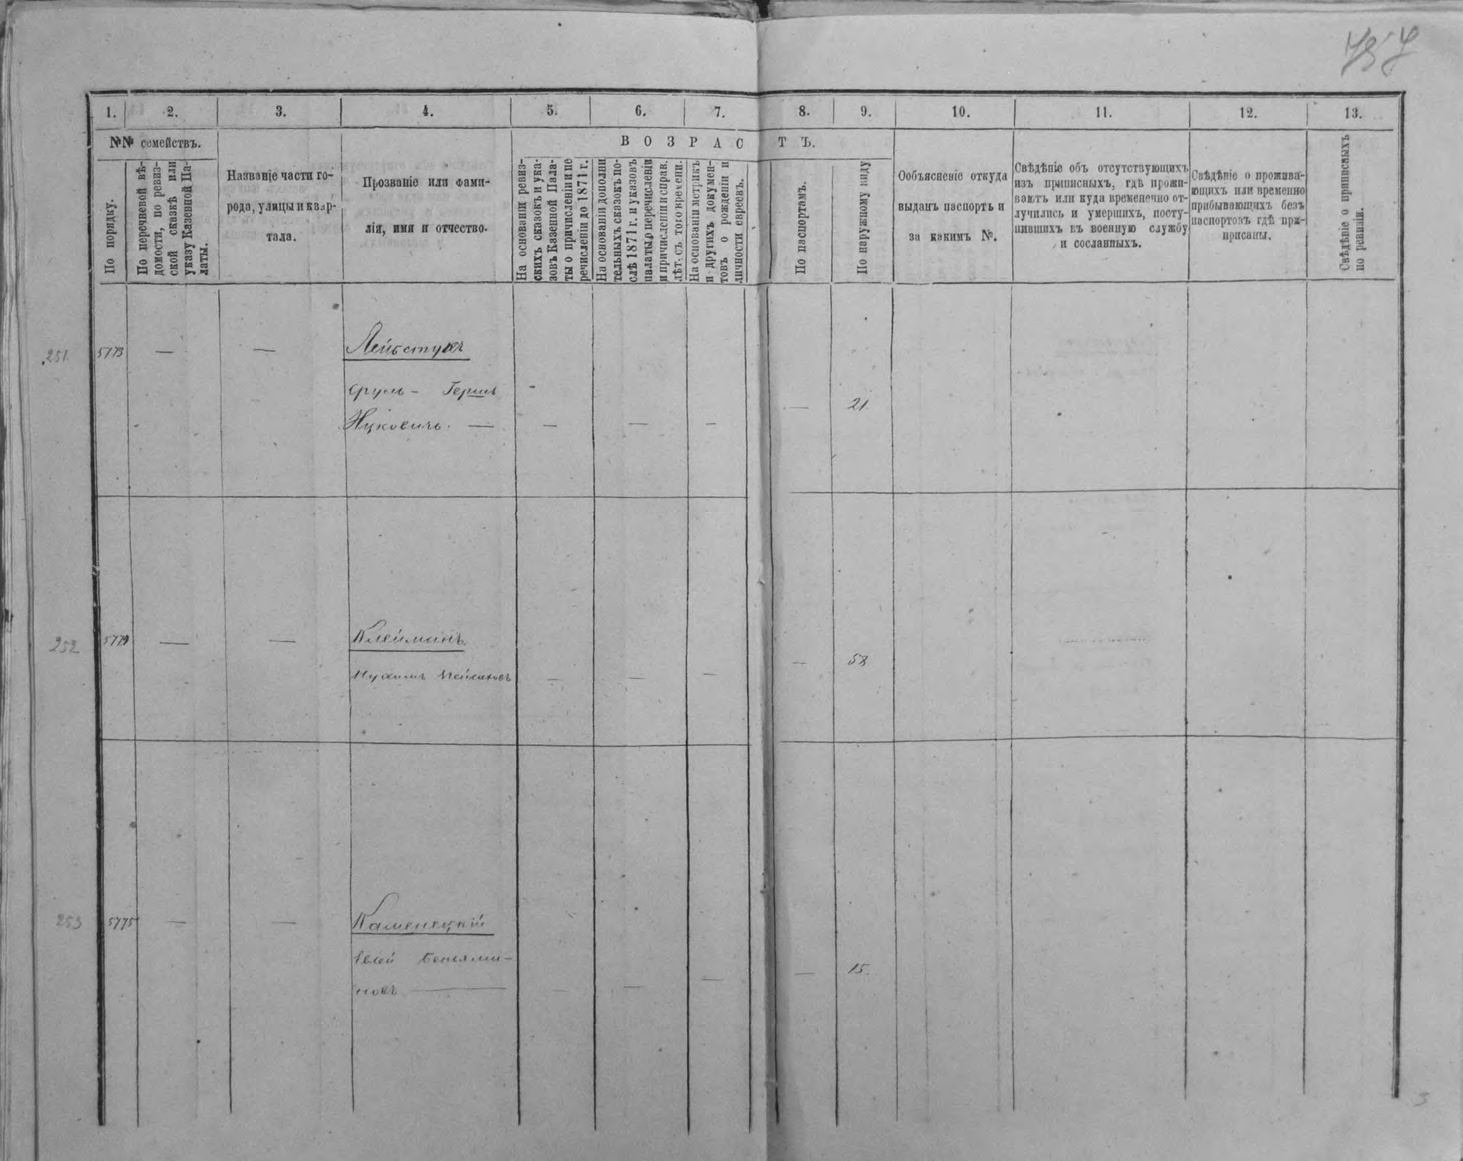 757
1.
2.
3.
4.
5.
6.
7.
8.
9.
10.
11.
12.
13.
№№ семействъ.
ВОЗРАСТЪ.
По порядку.
По перечневой вѣ-
домости, по ревиз-
ской сказкѣ или
указу Казенной Па-
латы.
Названіе части го-
рода, улицы и квар-
тала.
Прозваніе или фами-
лія, имя и отчество.
На основаніи ревиз-
скихъ сказокъ и ука-
зовъ Казенной Пала-
ты о причисленіи и пе
речисленіи до 1871 г.
На основаніи дополни
тельныхъ сказокъ по-
слѣ 1871 г. и указовъ
палаты, перечисленіи
и причисленіи и справ.
лѣт. съ того времени.
На основаніи метрикъ
и другихъ докумен-
товъ о рожденіи и
личности евреевъ.
По паспортамъ.
По наружному виду
Объясненіе откуда
выданъ паспортъ и
за какимъ №.
Свѣдѣніе объ отсутствующихъ
изъ приписныхъ, гдѣ прожи-
ваютъ или куда временечно от-
лучились и умершихъ, посту-
пившихъ въ военную службу
и сосланныхъ.
Свѣдѣніе о прожива-
ющихъ или временно
прибывающихъ безъ
паспортовъ гдѣ при-
писаны.
Свѣдѣніе о приписныхъ
по ревизіи.
251
5773 — —
Срулъ - Герш
— — — — 21
252
— — Клейманъ
— — — — 58
253
5775 — — Каменецкій
— — — — 15.